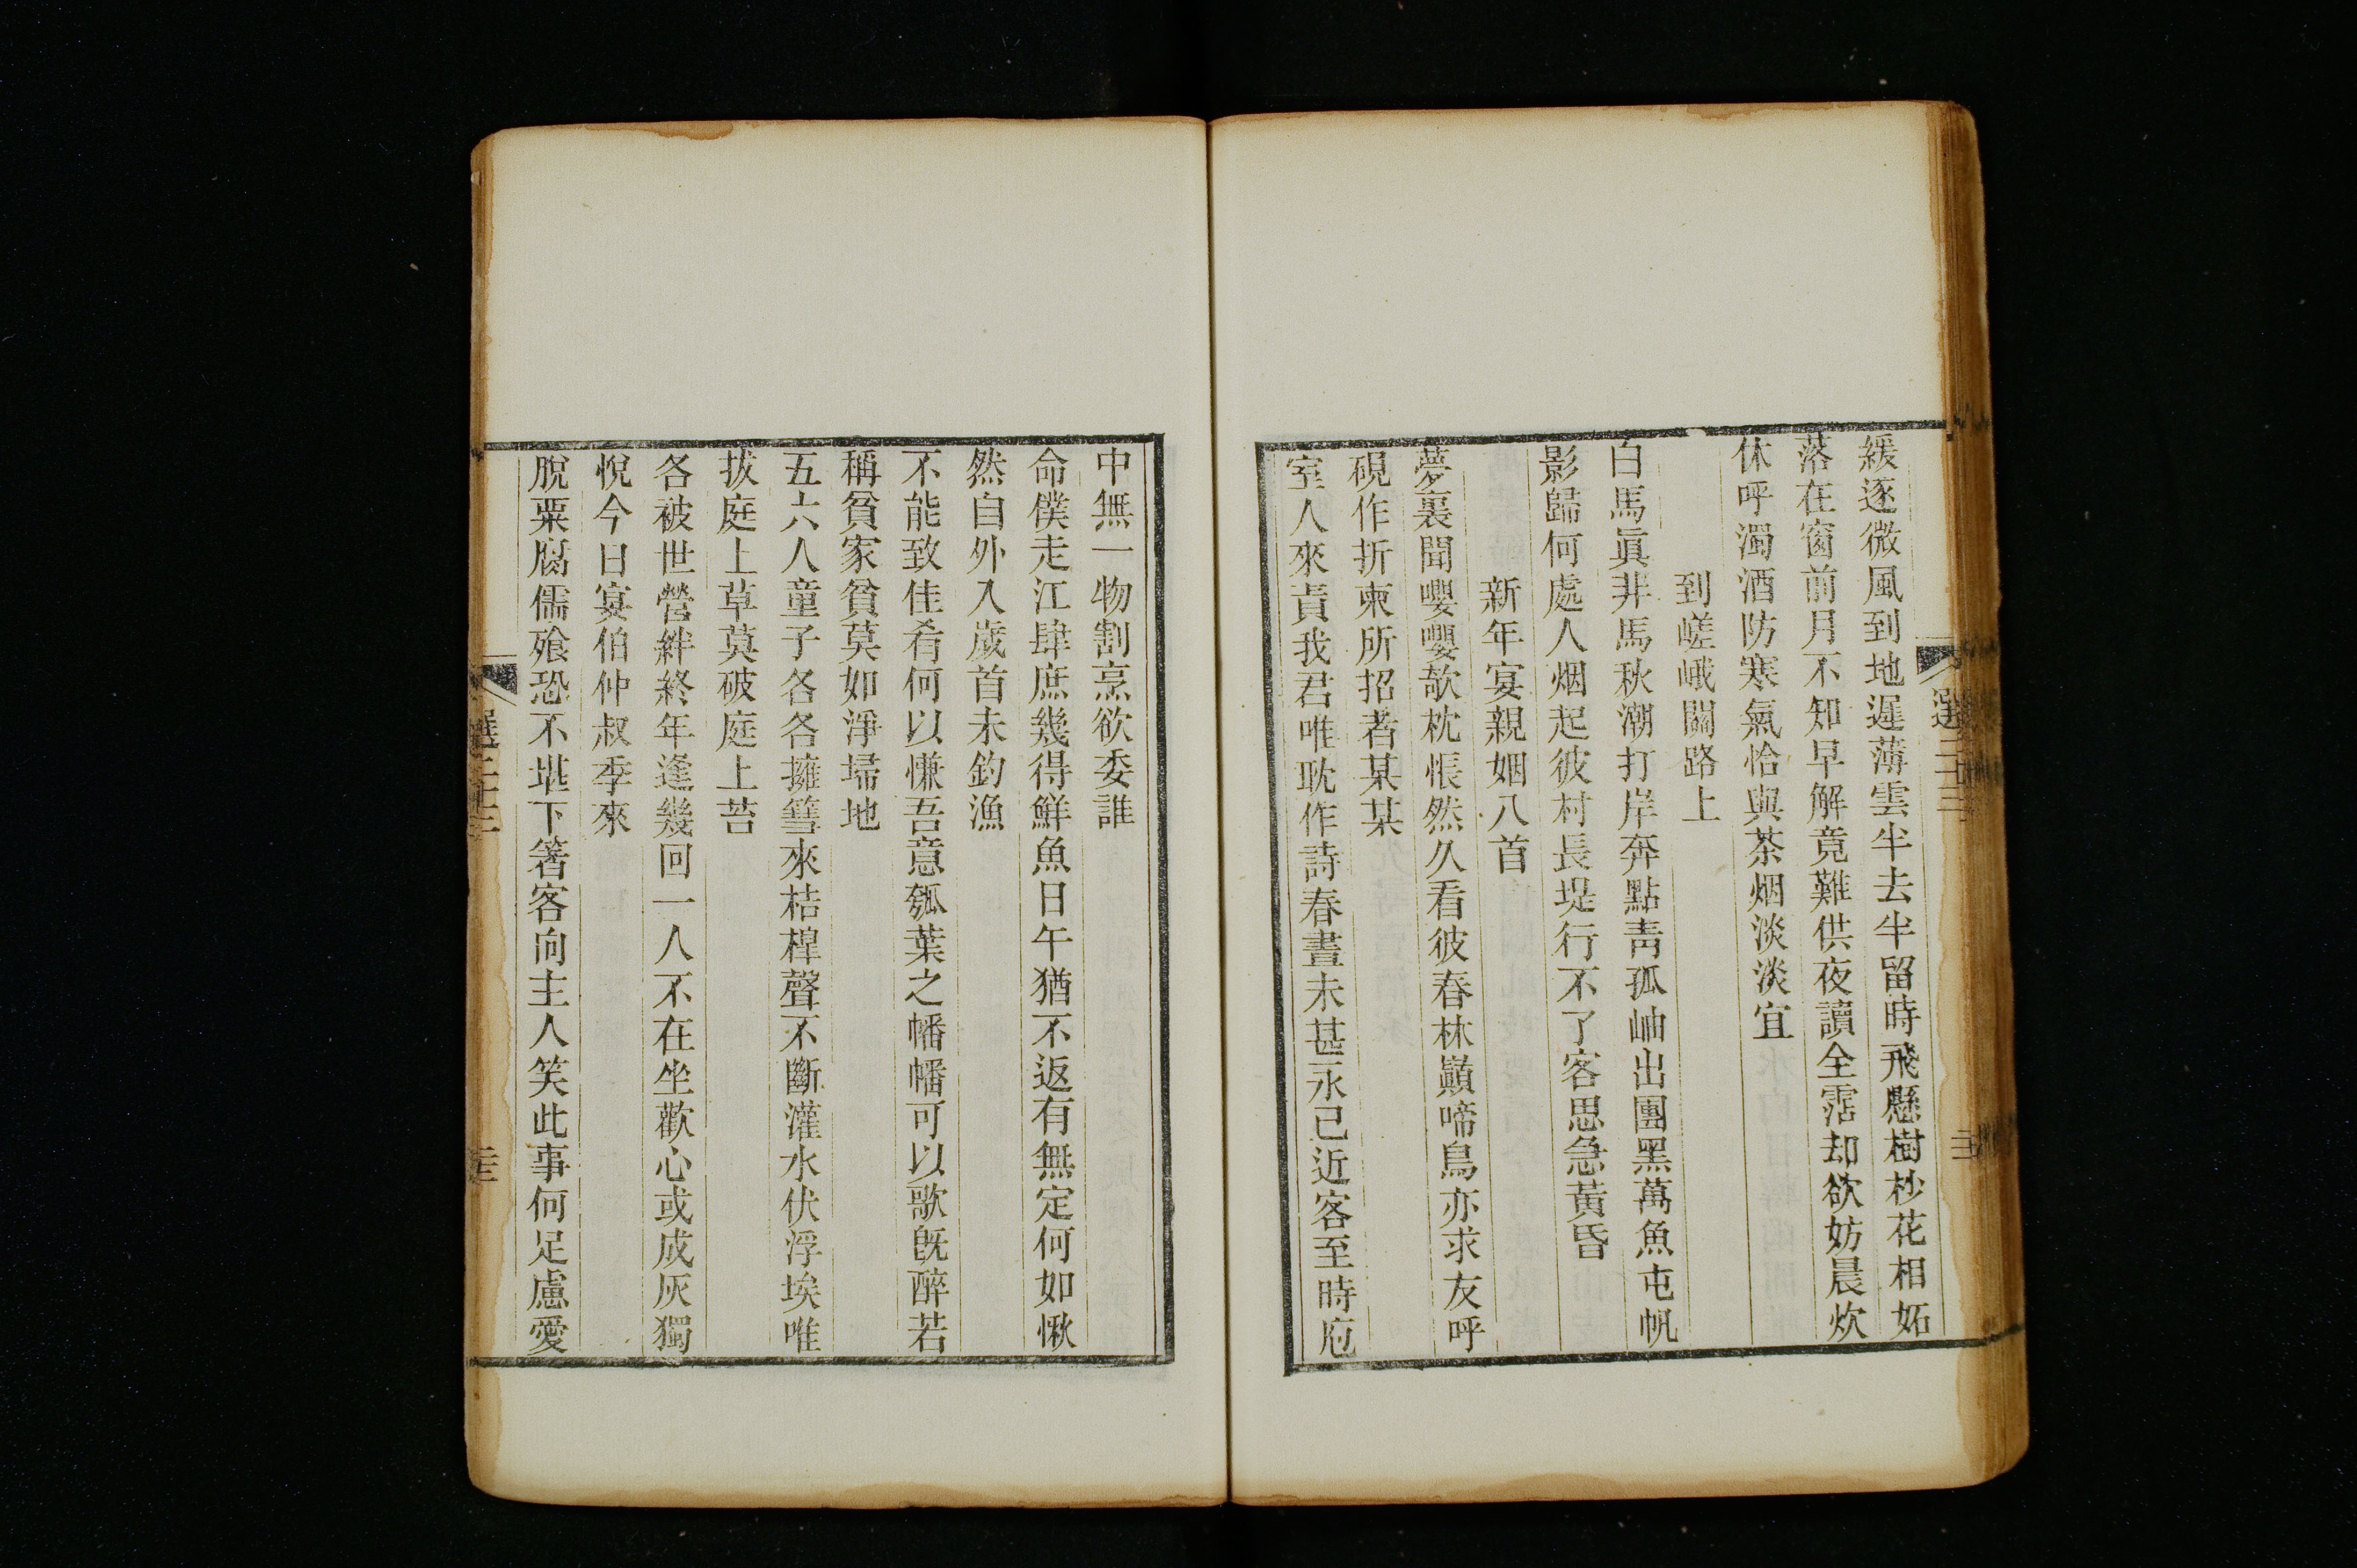 緩逐微風到地遲薄雲半去半留時飛懸樹杪花相妬
落在窗前月不知早解竟難供夜讀全霑却欲妨晨炊
休呼濁酒防寒氣恰與茶烟淡淡宜
到嵯峨關路上
白馬眞非馬秋潮打岸奔點靑孤岫出團黑萬魚屯帆
影歸何處人烟起彼村長堤行不了客思急黃昏
新年宴親姻八首
夢裏聞嚶嚶欹枕悵然久看彼春林巓啼鳥亦求友呼
硯作折柬所招者某某
室人來責我君唯耽作詩春晝未甚永已近客至時庖
中無一物割烹欲委誰
命僕走江肆庶幾得鮮魚日午猶不返有無定何如愀
然自外入歲首未釣漁
不能致佳肴何以慊吾意瓠葉之幡幡可以歌旣醉若
稱貧家貧莫如淨埽地
五六人童子各各擁篲來桔槹聲不斷灌水伏浮埃唯
拔庭上草莫破庭上苔
各被世營絆終年逢幾回一人不在坐歡心或成灰獨
悅今日宴伯仲叔季來
脫粟腐儒飱恐不堪下箸客向主人笑此事何足慮愛